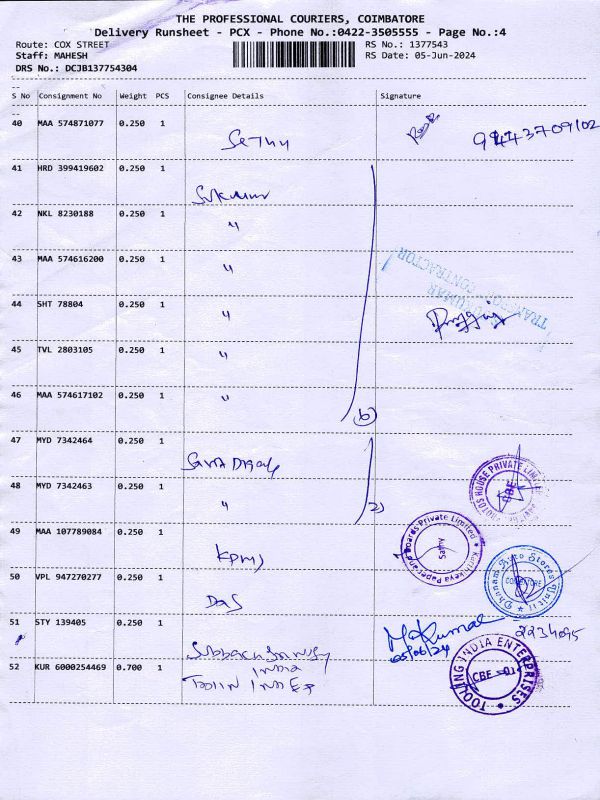 THE PROFESSIONAL COURIERS, COIMBATORE
Delivery Runsheet - PCX - Phone No.:0422-3505555 - Page No.:4
Route: COX STREET RS No.: 1377543
Staff: MAHESH RS Date: 05-Jun-2024
DRS No.: DCJB137754304
S No Consignment No Weight PCS Consignee Details Signature
40 MAA 574871077 0.250 1 Sethu
41 HRD 399419602 0.250 1
42 NKL 8230188 0.250 1 "
43 MAA 574616200 0.250 1 "
44 SHT 78804 0.250 1 "
45 TVL 2803105 0.250 1 "
46 MAA 574617102 0.250 1 "
6)
47 MYD 7342464 0.250 1
48 MYD 7342463 0.250 1 " 2)
49 MAA 107789084 0.250 1
50 VPL 947270277 0.250 1
51 STY 139405 0.250 1
05/06/24
2234095
52 KUR 6000254469 0.700 1 India
TRANSPORT CONTRACTOR
HOUSE PRIVATE LIMITED
CBE
Karthikeya Paper and Boards Private Limited
Dhanam Auto Stores Unit II
COIMBATORE
TOOLING INDIA ENTERPRISES
CBE - 01